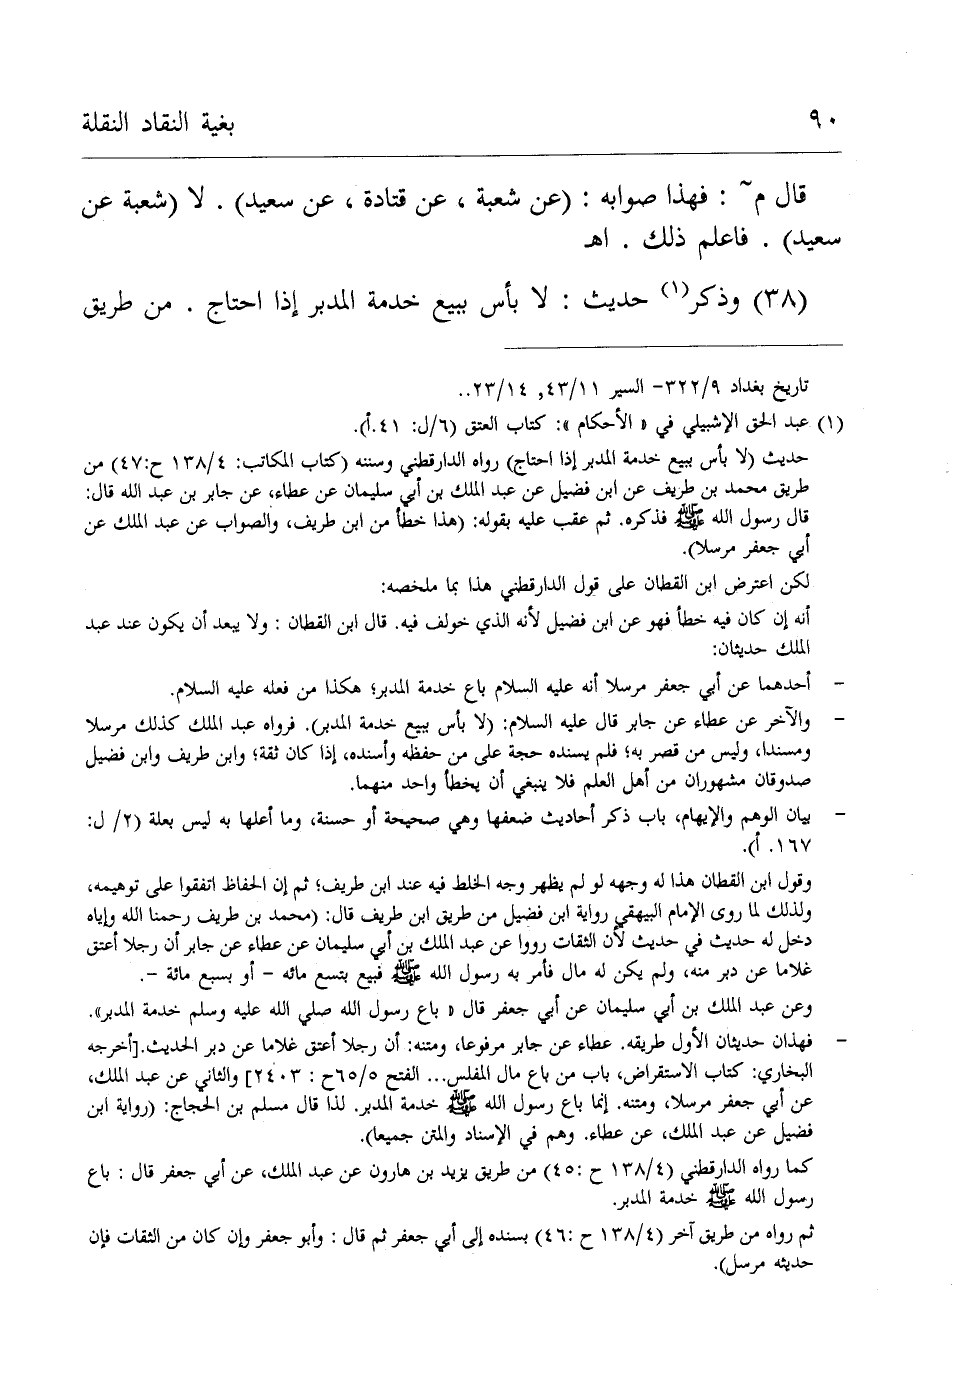 ٩٠ بغية النقاد النقلة
قال م~ : فهذا صوابه : (عن شعبة ، عن قتادة ، عن سعيد) . لا (شعبة عن
سعيد) . فاعلم ذلك . اهـ
(٣٨) وذكر(١) حديث : لا بأس ببيع خدمة المدبر إذا احتاج . من طريق
تاريخ بغداد ٣٢٢/٩- السير ٤٣/١١, ٢٣/١٤..
(١) عبد الحق الإشبيلي في « الأحكام »: كتاب العتق (٦/ل: ٤١.أ).
حديث (لا بأس ببيع خدمة المدبر إذا احتاج) رواه الدارقطني وسننه (كتاب المكاتب: ١٣٨/٤ ح:٤٧) من
طريق محمد بن طريف عن ابن فضيل عن عبد الملك بن أبي سليمان عن عطاء، عن جابر بن عبد الله قال:
قال رسول الله ﷺ فذكره. ثم عقب عليه بقوله: (هذا خطأ من ابن طريف، والصواب عن عبد الملك عن
أبي جعفر مرسلا).
لكن اعترض ابن القطان على قول الدارقطني هذا بما ملخصه:
أنه إن كان فيه خطأ فهو عن ابن فضيل لأنه الذي خولف فيه. قال ابن القطان : ولا يبعد أن يكون عند عبد
الملك حديثان:
- أحدهما عن أبي جعفر مرسلا أنه عليه السلام باع خدمة المدبر؛ هكذا من فعله عليه السلام.
- والآخر عن عطاء عن جابر قال عليه السلام: (لا بأس ببيع خدمة المدبر). فرواه عبد الملك كذلك مرسلا
ومسندا، وليس من قصر به؛ فلم يسنده حجة على من حفظه وأسنده، إذا كان ثقة؛ وابن طريف وابن فضيل
صدوقان مشهوران من أهل العلم فلا ينبغي أن يخطأ واحد منهما.
- بيان الوهم والإيهام، باب ذكر أحاديث ضعفها وهي صحيحة أو حسنة، وما أعلها به ليس بعلة (٢/ ل:
١٦٧. أ).
وقول ابن القطان هذا له وجهه لو لم يظهر وجه الخلط فيه عند ابن طريف؛ ثم إن الحفاظ اتفقوا على توهيمه،
ولذلك لما روى الإمام البيهقي رواية ابن فضيل من طريق ابن طريف قال: (محمد بن طريف رحمنا الله وإياه
دخل له حديث في حديث لأن الثقات رووا عن عبد الملك بن أبي سليمان عن عطاء عن جابر أن رجلا أعتق
غلاما عن دبر منه، ولم يكن له مال فأمر به رسول الله ﷺ فبيع بتسع مائه - أو بسبع مائة -.
وعن عبد الملك بن أبي سليمان عن أبي جعفر قال « باع رسول الله صلي الله عليه وسلم خدمة المدبر».
- فهذان حديثان الأول طريقه. عطاء عن جابر مرفوعا، ومتنه: أن رجلا أعتق غلاما عن دبر الحديث.[أخرجه
البخاري: كتاب الاستقراض، باب من باع مال المفلس... الفتح ٦٥/٥ح : ٢٤٠٣] والثاني عن عبد الملك،
عن أبي جعفر مرسلا، ومتنه. إنما باع رسول الله ﷺ خدمة المدبر. لذا قال مسلم بن الحجاج: (رواية ابن
فضيل عن عبد الملك، عن عطاء. وهم في الإسناد والمتن جميعا).
كما رواه الدارقطني (١٣٨/٤ ح :٤٥) من طريق يزيد بن هارون عن عبد الملك، عن أبي جعفر قال : باع
رسول الله ﷺ خدمة المدبر.
ثم رواه من طريق آخر (١٣٨/٤ ح :٤٦) بسنده إلى أبي جعفر ثم قال : وأبو جعفر وإن كان من الثقات فإن
حديثه مرسل).